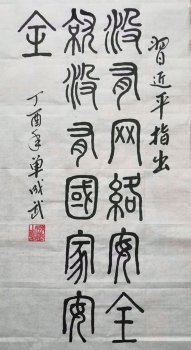 習近平指出
没有网络安全
就没有國家安
全
丁酉年單成武